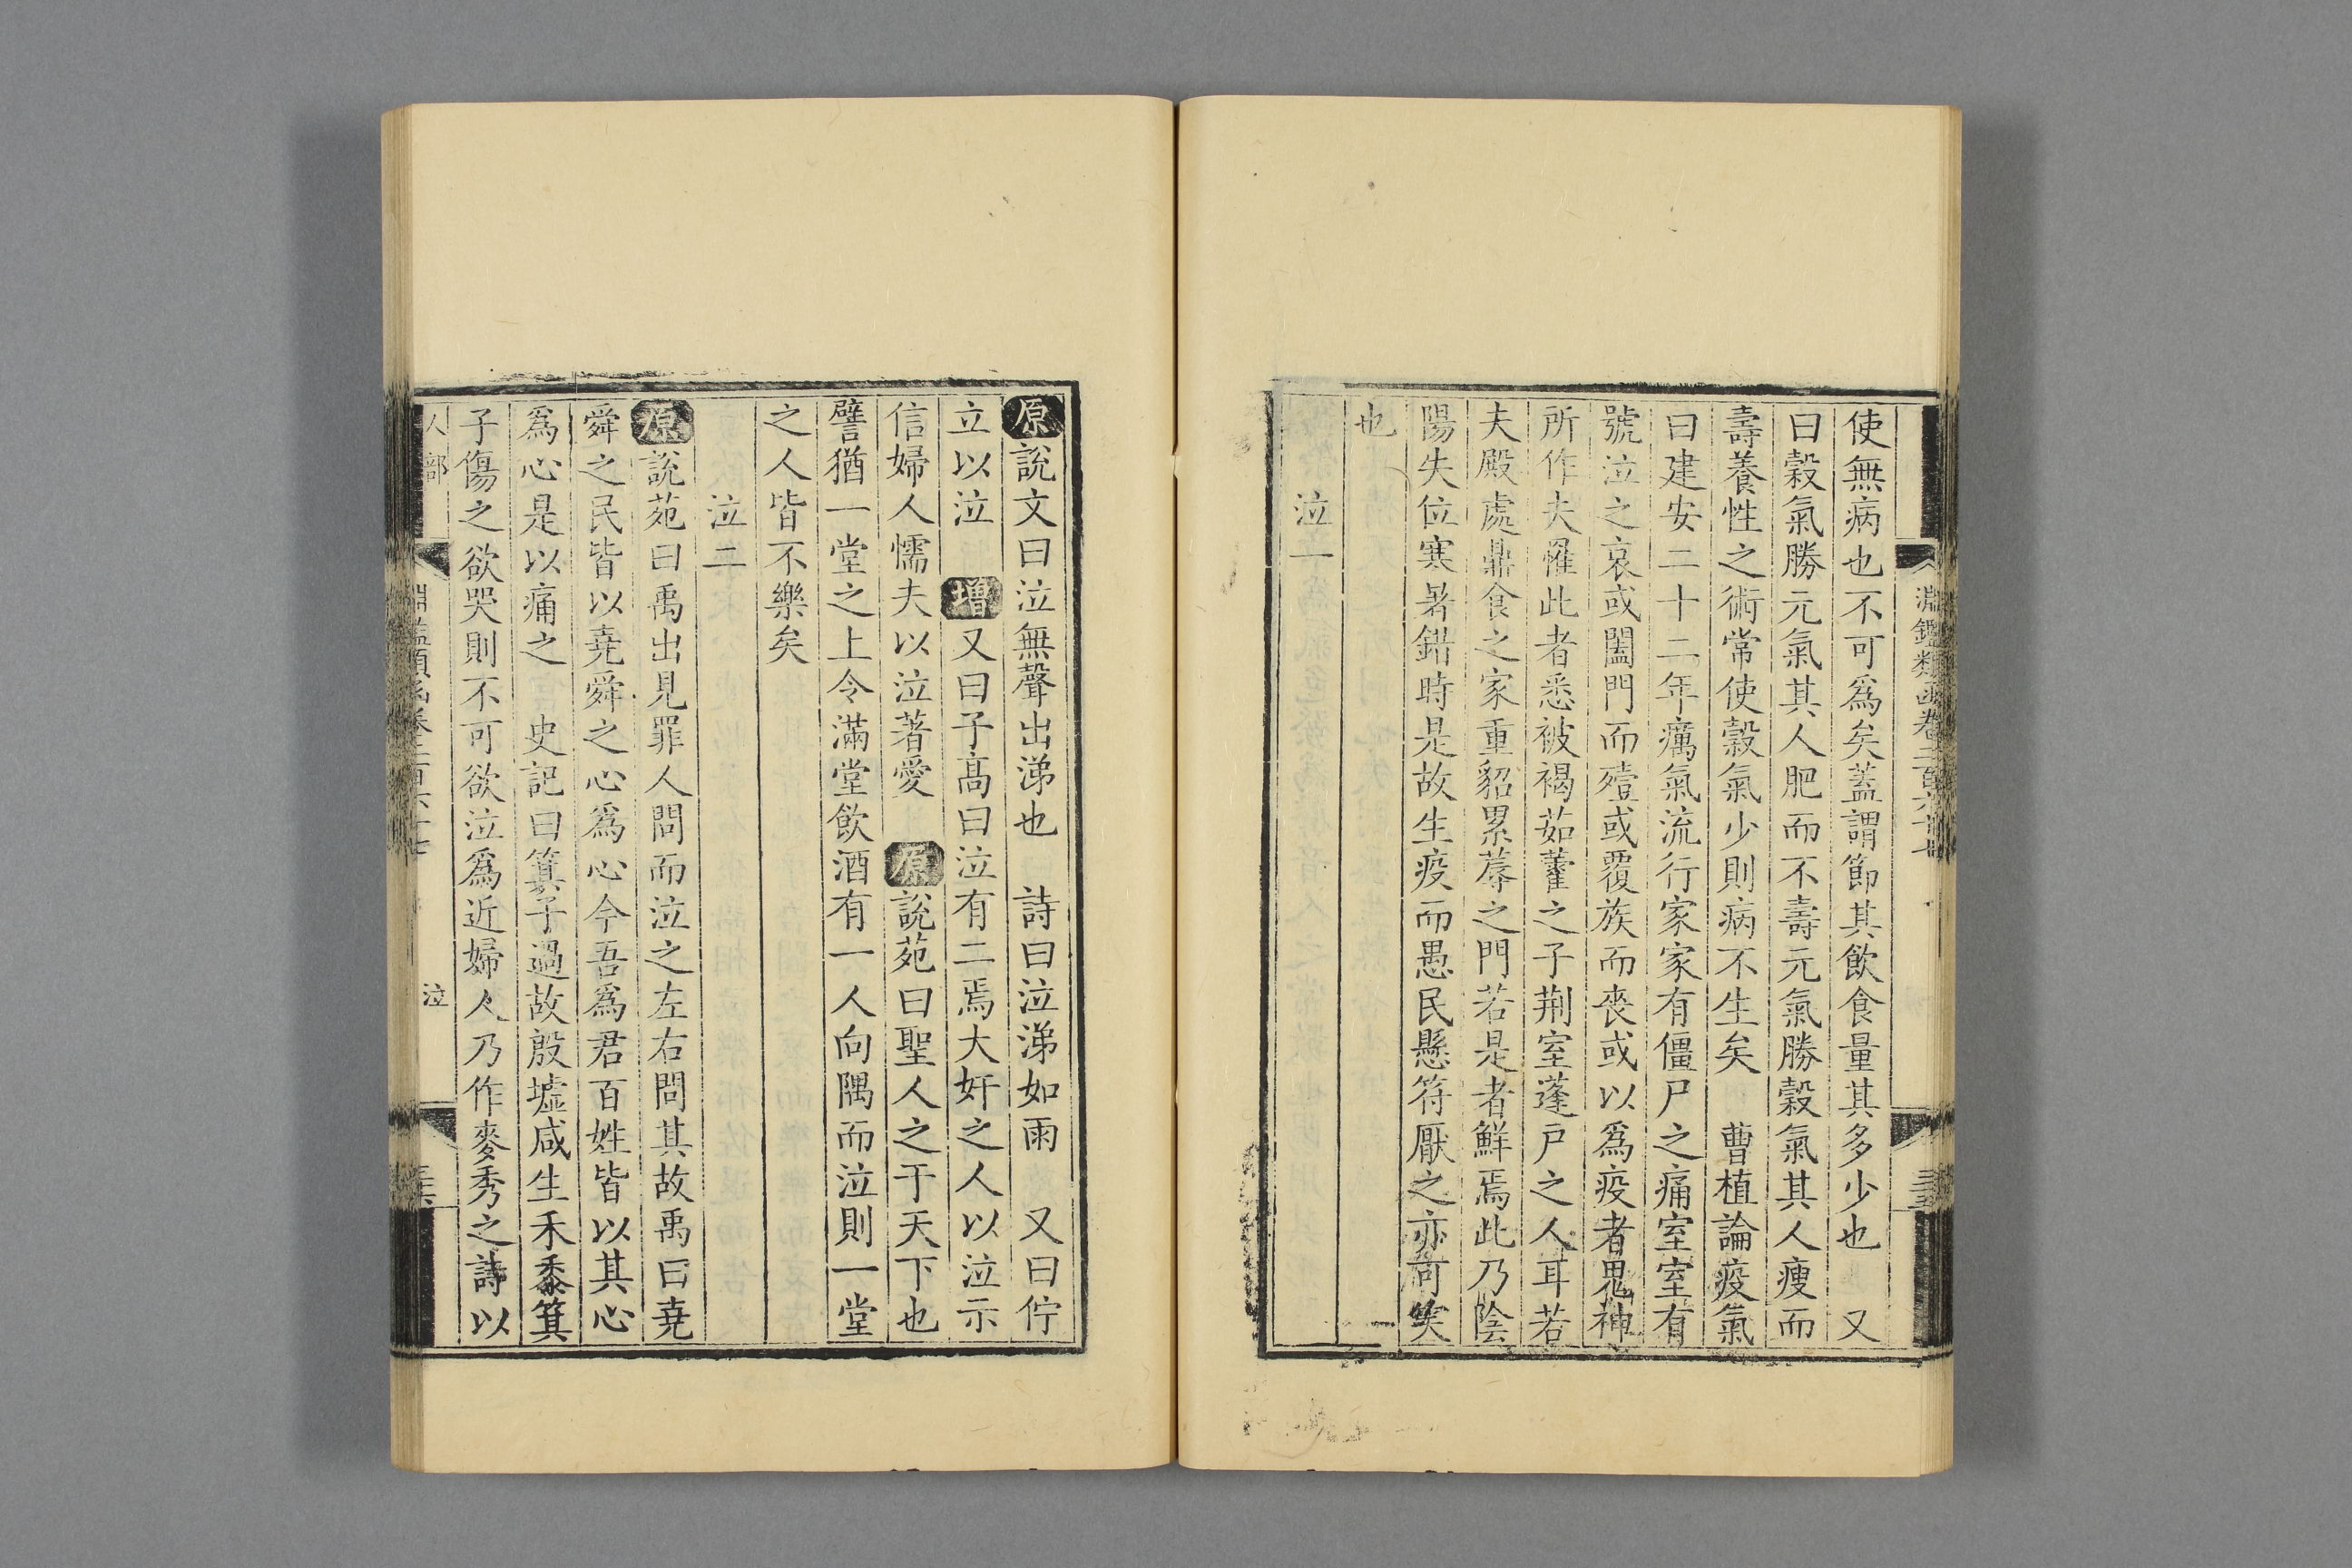 淵鑑類函卷二百六十七
使無病也不可爲矣蓋謂節其飲食量其多少也　又
曰穀氣勝元氣其人肥而不壽元氣勝穀氣其人瘦而
壽養性之術常使穀氣少則病不生矣　曹植論疫氣
曰建安二十二年癘氣流行家家有僵尸之痛室室有
號泣之哀或闔門而殪或覆族而喪或以爲疫者鬼神
所作夫罹此者悉被褐茹藿之子荆室蓬戸之人耳若
夫殿處鼎食之家重貂累蓐之門若是者鮮焉此乃陰
陽失位寒暑錯時是故生疫而愚民懸符厭之亦可笑
也
泣一
原說文曰泣無聲出涕也　詩曰泣涕如雨　又曰佇
立以泣　增又曰子髙曰泣有二焉大奸之人以泣示
信婦人懦夫以泣著愛　原說苑曰聖人之于天下也
譬猶一堂之上令滿堂飲酒有一人向隅而泣則一堂
之人皆不樂矣
泣二
原說苑曰禹出見罪人問而泣之左右問其故禹曰堯
舜之民皆以堯舜之心爲心今吾爲君百姓皆以其心
爲心是以痛之　史記曰箕子過故殷墟咸生禾黍箕
子傷之欲哭則不可欲泣爲近婦人乃作麥秀之詩以
人部
淵鑑類函卷二百六十七
泣